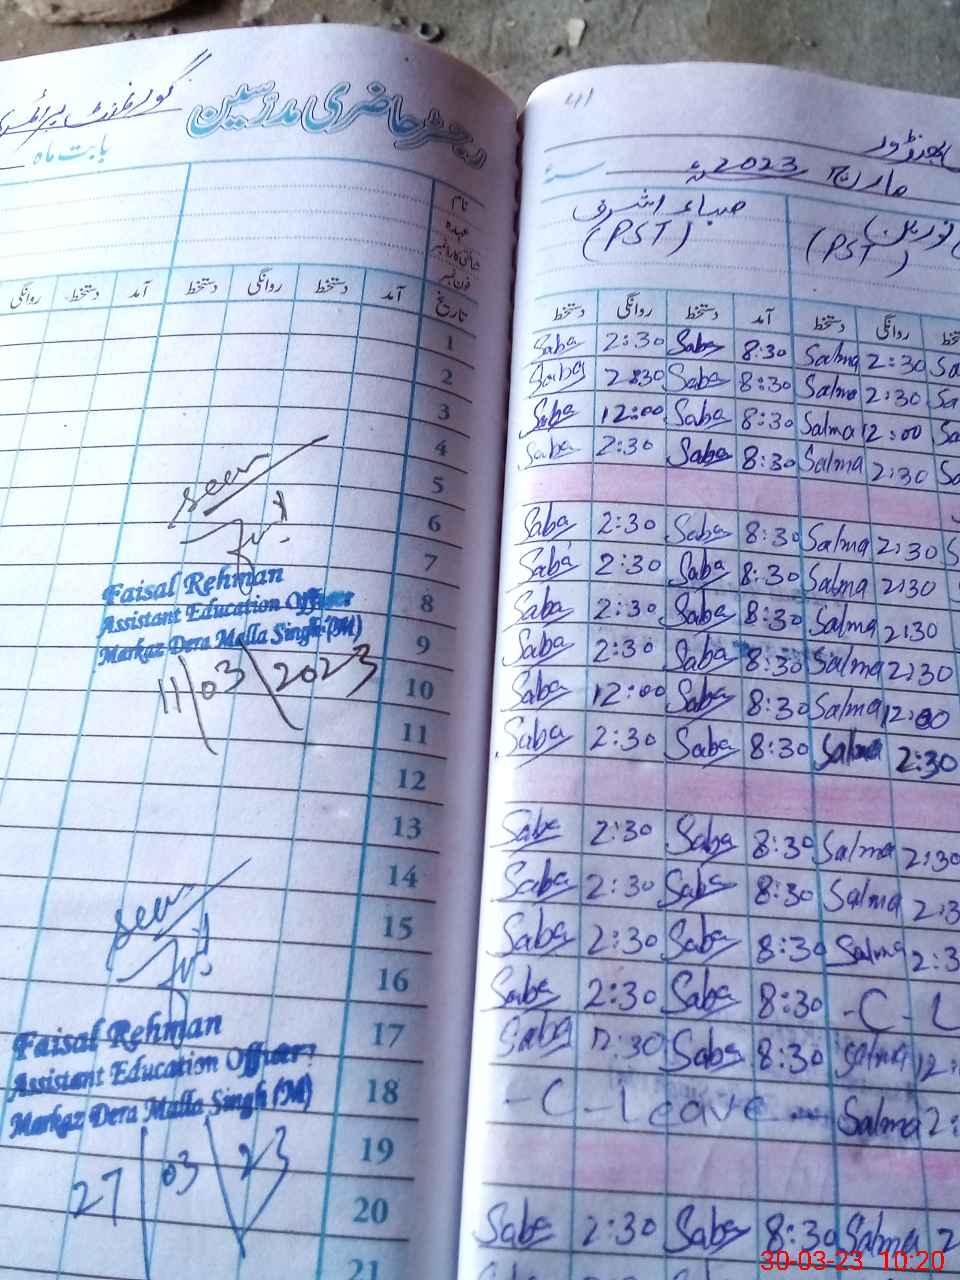 گورنمنٹ پرائمری
رجسٹر حاضری مدرسین
بابت ماہ
نام
عہدہ
شناختی کارڈ نمبر
فون نمبر
تاریخ آمد دستخط روانگی دستخط آمد دستخط روانگی
1
2
3
4
5
6
7
8
9
10
11
12
13
14
15
16
17
18
19
20
21
Seen
Faisal Rehman
Assistant Education Officer
Markaz Dera Malla Singh (M)
11/03/2023
Seen
Faisal Rehman
Assistant Education Officer
Markaz Dera Malla Singh (M)
27/03/23
41
مارچ 2023ء
سنہ
صباء اشرف
(PST) (PST)
دستخط روانگی دستخط آمد دستخط روانگی
Saba 2:30 Saba 8:30 Salma 2:30 Sa
Saba 2:30 Saba 8:30 Salma 2:30 Sa
Saba 12:00 Saba 8:30 Salma 12:00 Sa
Saba 2:30 Saba 8:30 Salma 2:30 Sa
Saba 2:30 Saba 8:30 Salma 2:30 S
Saba 2:30 Saba 8:30 Salma 2:30
Saba 2:30 Saba 8:30 Salma 2:30
Saba 2:30 Saba 8:30 Salma 2:30
Saba 12:00 Saba 8:30 Salma 12:00
Saba 2:30 Saba 8:30 Salma 2:30
Saba 2:30 Saba 8:30 Salma 2:30
Saba 2:30 Saba 8:30 Salma 2:3
Saba 2:30 Saba 8:30 Salma 2:3
Saba 2:30 Saba 8:30 -C-L
Saba 12:30 Saba 8:30 Salma 12:
-C-Leave Salma 2:
Saba 2:30 Saba 8:30 Salma 2
30-03-23 10:20